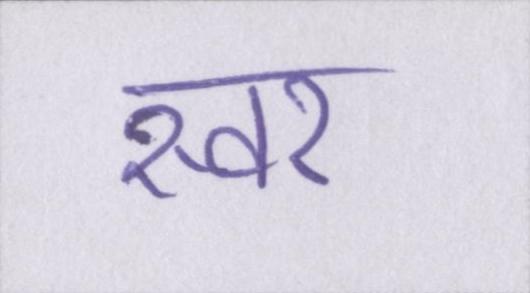 स्वर